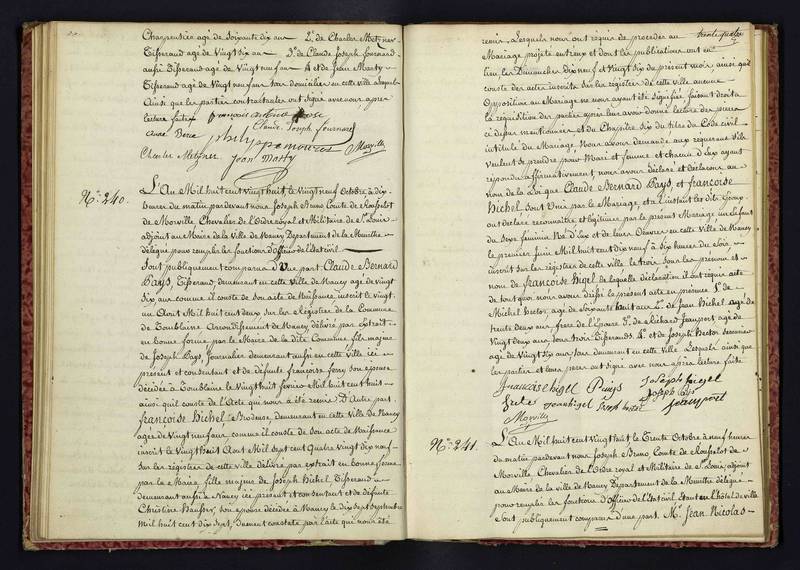 Charpentier agé de Soixante dix ans 2.° de Charles Metzner
Tisserand agé de Vingt six ans 3.° de Claude Joseph Fournard
aussi Tisserand agé de Vingt neuf ans 4 et de Jean Marty
Tisserand agé de Vingt neuf ans tous domiciliés en cette ville
Ainsi que les parties contractantes ont signé avec nous après
lecture faite
Claude Joseph Fournard
Anne
Charles Metzner Jean Marty Morville
N.° 240.
L'An Mil huit cent vingt huit, le Vingt neuf Octobre à dix
heures du matin pardevant nous Joseph Bruno Comte de Rousselot
de Morville, Chevalier de l'Ordre royal et Militaire de S.t Louis
adjoint au Maire de la Ville de Nancy Département de la Meurthe
délégué pour remplir les fonctions d'Officier de l'état civil
Sont publiquement comparus d'Une part Claude Bernard
Pays, Tisserand, demeurant en cette ville de Nancy agé de vingt
six ans comme il conste de son acte de Naissance inscrit le vingt
un Aout Mil huit cent deux sur les Registres de la Commune
de Tomblaine Arrondissement de Nancy délivré par extrait
en bonne forme par le Maire de la dite Commune fils majeur
de Joseph Pays, Journalier demeurant aussi en cette ville ici
présent et consentant et de défunte françoise ferry son épouse
décédée à Tomblaine le Vingt huit février Mil huit cent huit
ainsi qu'il conste de l'Acte qui nous a été remis D'Autre part
françoise Hichel, Brodeuse, demeurant en cette ville de Nancy
agée de Vingt neuf ans, comme il conste de son acte de Naissance
inscrit le Vingt huit Aout Mil sept cent Quatre vingt dix neuf
sur les registres de cette ville délivré par extrait en bonne forme
par le Maire, fille majeure de Joseph Hichel Tisserand
demeurant aussi à Nancy ici présent et consentant et de défunte
Christine son épouse décédée à Nancy le dix Sept Septembre
Mil huit cent dix sept, dument constaté par l'acte qui nous a été
trente quatre
remis, Lesquels nous ont requis de procéder au
Mariage projeté entr'eux et dont les publications ont eu
lieu les Dimanches dix neuf et vingt six du présent mois, ainsi qu'il
conste des actes inscrits sur les registres de cette ville aucune
Opposition au Mariage ne nous ayant été signifiée faisant droit à
la réquisition des parties après leur avoir donné lecture des pièces
ci dessus mentionnées et du Chapitre Six du titre du Code civil
intitulé du Mariage Nous avons demandé aux requérans s'ils
veulent se prendre pour Mari et femme et chacun d'Eux ayant
répondu affirmativement nous avons déclaré et déclarons au
nom de la Loi que Claude Bernard Pays, et françoise
Hichel, sont Unis par le Mariage, et à l'instant les dits Epoux
ont déclaré reconnaitre et légitimer par le présent Mariage un Enfant
du Sexe féminin Né d'Eux et de leurs Oeuvres en cette Ville de Nancy
le premier Juin Mil huit cent dix neuf à Six heures du Soir
inscrit sur les registres de cette ville le trois sous les prénoms et
nom de françoise Higel de laquelle déclaration ils ont requis acte
de tout quoi nous avons dressé le présent acte en présence 1.° de
Michel hector agé de Soixante huit ans 2.° de Jean Hichel agé de
trente Deux ans frere de l'Epouse 3.° de Richard Jeanport agé de
vingt Deux ans tous trois Tisserands 4.° et de Joseph Hector
agé de Vingt Six ans tous demeurant en cette Ville Lesquels ainsi que
les parties et leurs pères ont signé avec nous après lecture faite
francoise higel Joseph higel
jean higel
Morville
N.° 241.
L'An Mil huit cent vingt huit le Trente Octobre à neuf heures
du matin pardevant nous Joseph Bruno Comte de Rousselot de
Morville Chevalier de l'Ordre royal et Militaire de S.t Louis, adjoint
au Maire de la ville de Nancy Département de la Meurthe délégué
pour remplir les fonctions d'Officier de l'état civil Etant en l'hôtel de ville
Sont publiquement comparus d'une part M.r Jean Nicolas